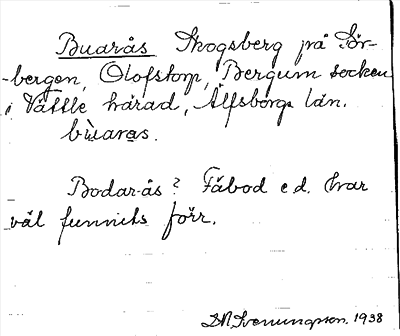 Buarås Skogsberg på Sör-
-bergen, Olofstorp, Bergum socken
i Vättle härad, Älfsborgs län.
bùaras.
Bodar-ås? Fäbod e.d. har
väl funnits förr.
D.N. Svenungsson. 1938